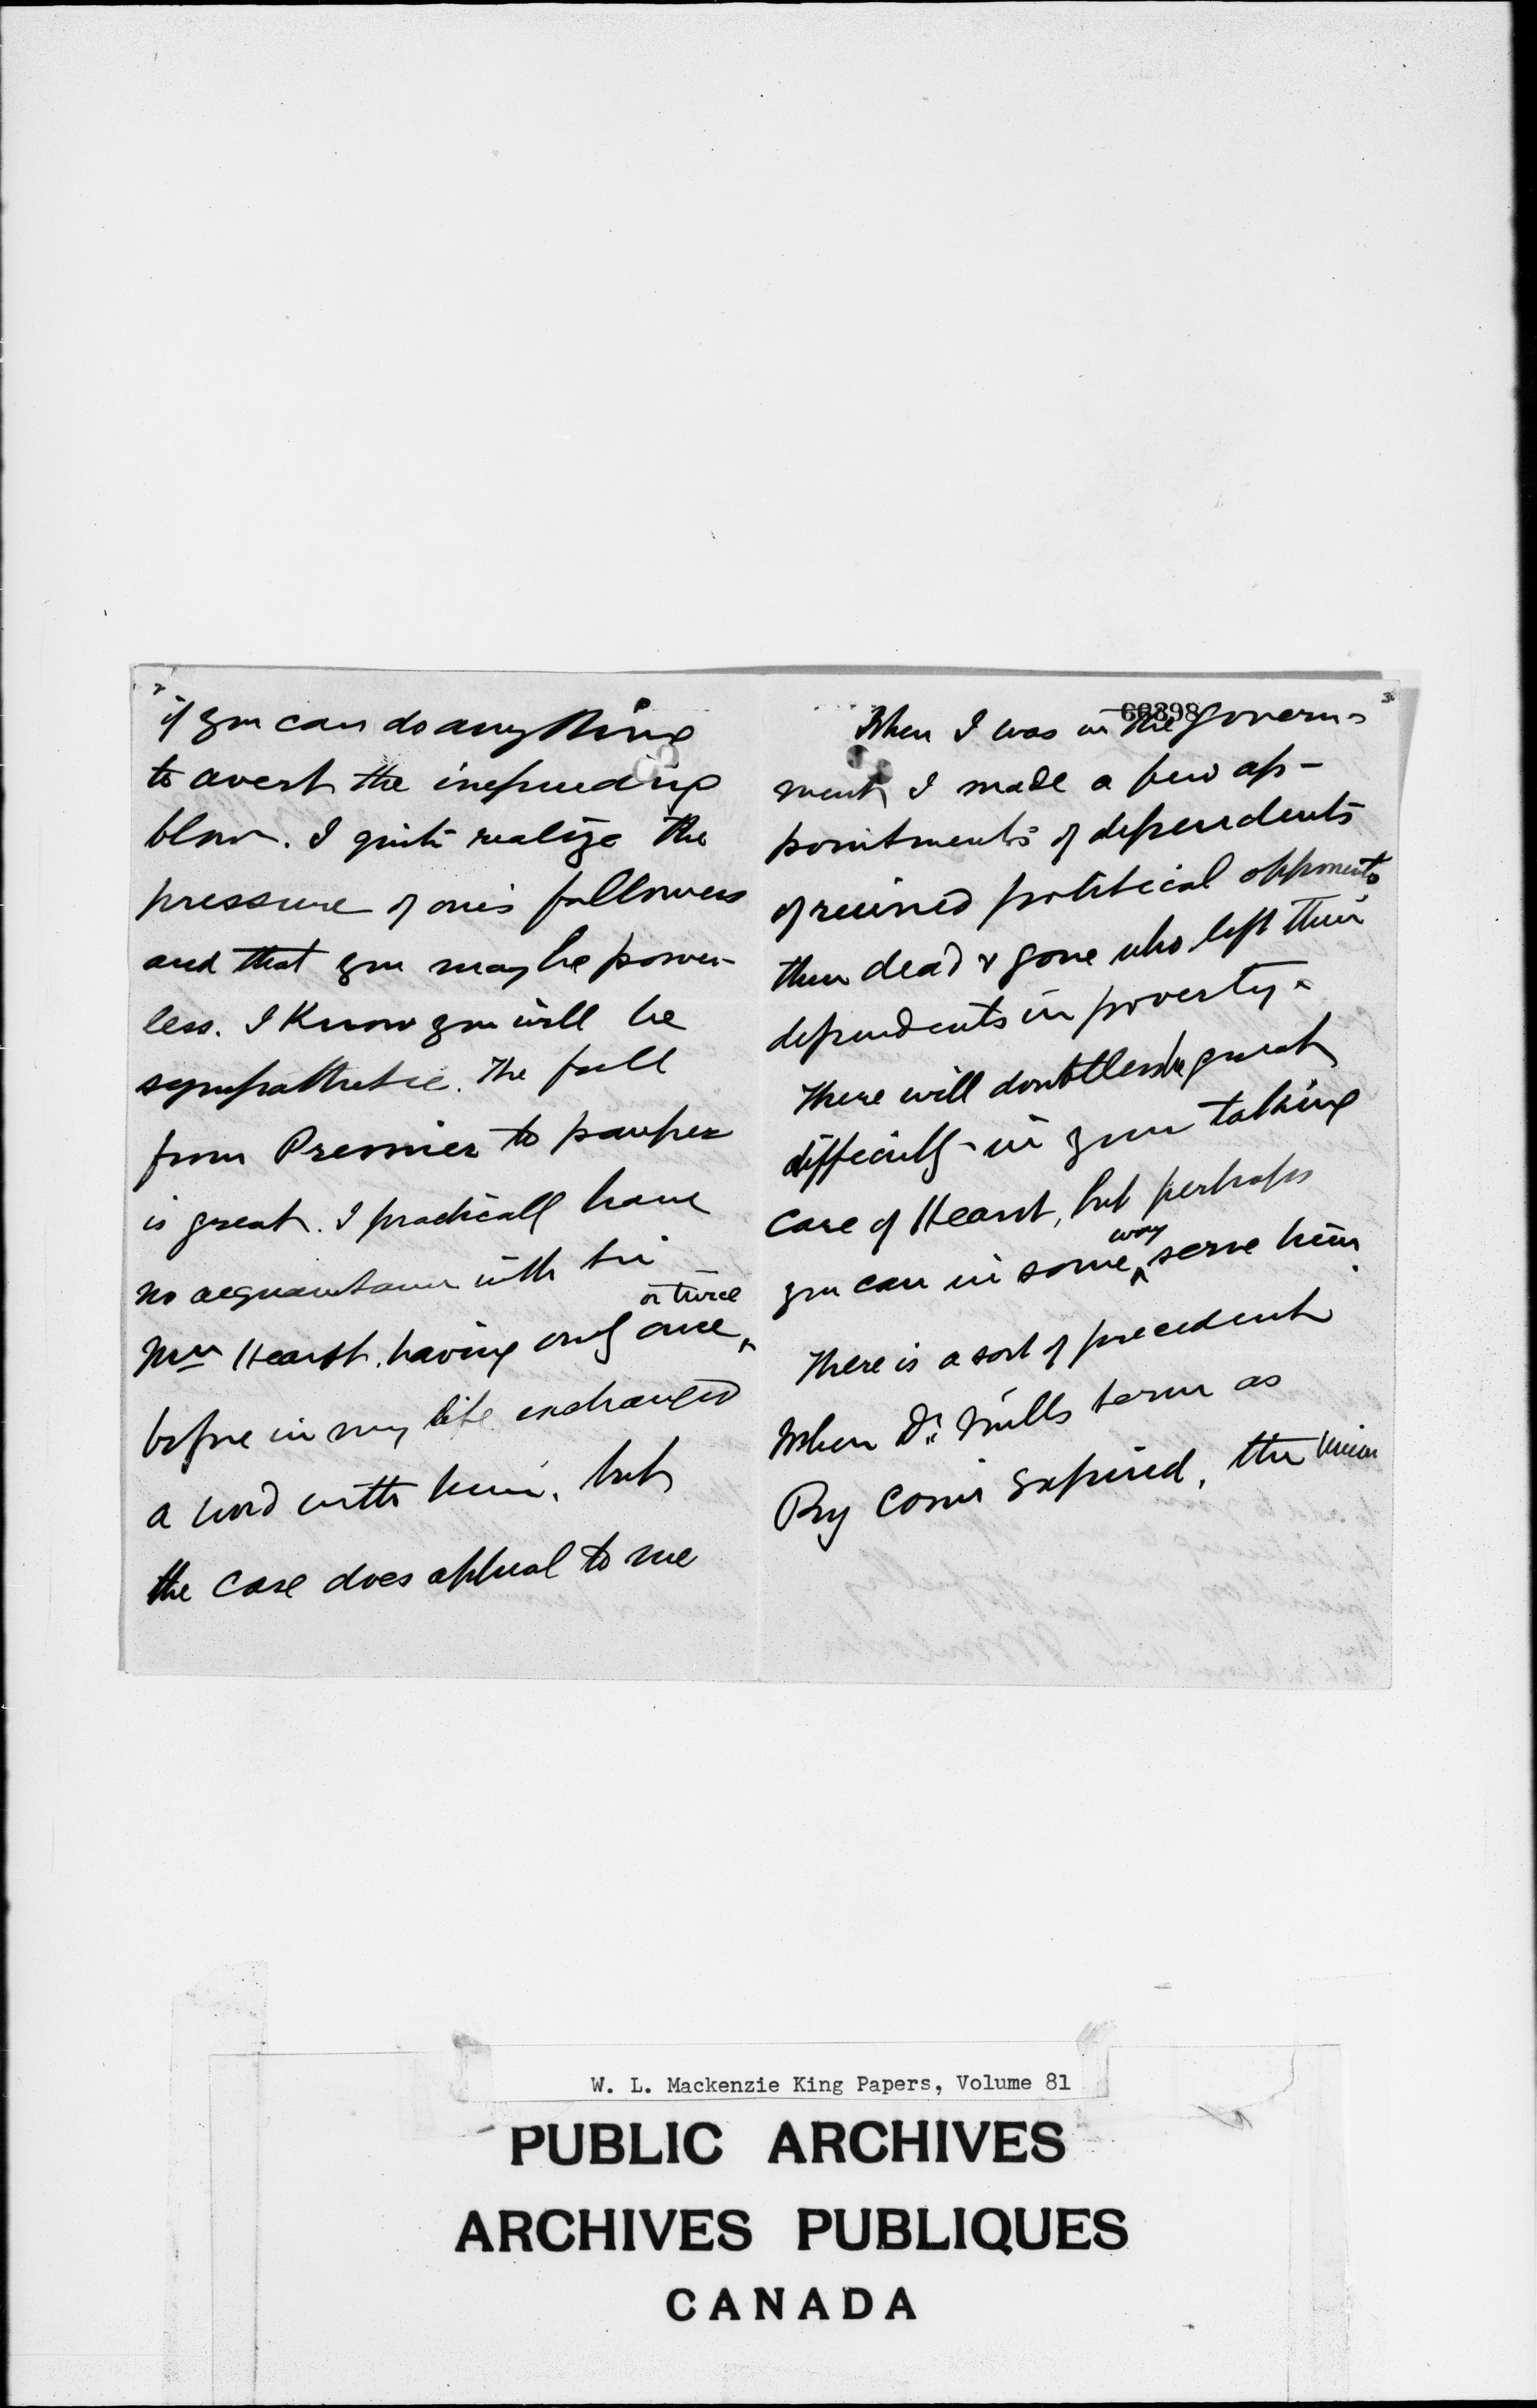 2
if you can do anything
to avert the impending
blow. I quite realize the
pressure of one's followers
and that you may be power-
less. I know you will be
sympathetic. The fall
from Premier to pauper
is great. I practicall have
no acquaintance with Sir
or twice
Wm Hearst, having only once
before in my life exchanged
a word with him, but
the case does appeal to me
3.
69398
When I was in the govern-
ment I made a few ap-
pointments of dependents
of ruined political opponents
then dead & gone who left their
dependents in poverty.
There will doubtless be great
difficulty in your taking
care of Hearst, but perhaps
way
you can in some serve him.
There is a sort of precedent
When Dr Mills term as
Ry Comr expired, the Union
W. L. Mackenzie King Papers, Volume 81
PUBLIC ARCHIVES
ARCHIVES PUBLIQUES
CANADA